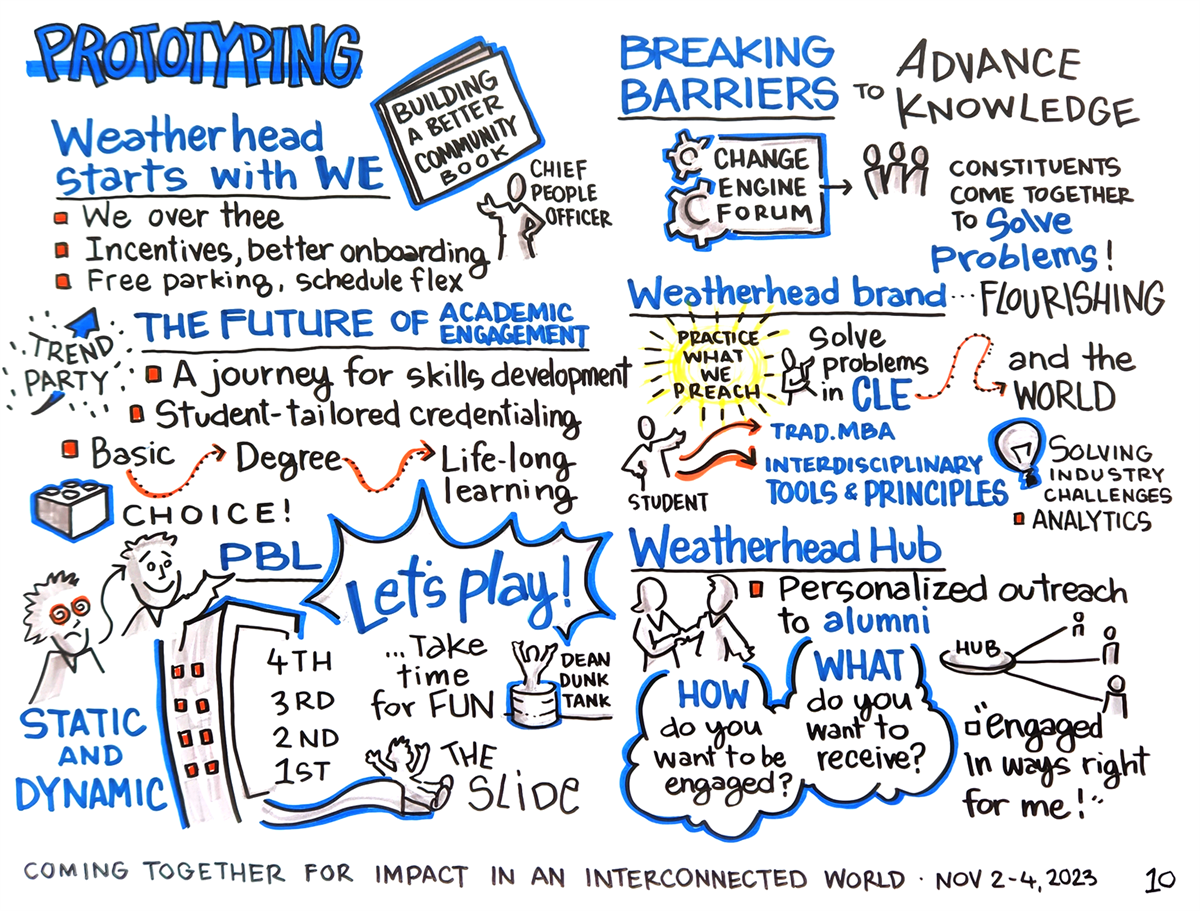 PROTOTYPING
BUILDING
A BETTER
COMMUNITY
BOOK
Weatherhead
starts with WE
CHIEF
PEOPLE
OFFICER
We over thee
Incentives, better onboarding
Free parking, schedule flex
TREND
PARTY
THE FUTURE OF ACADEMIC
ENGAGEMENT
A journey for skills development
Student-tailored credentialing
Basic Degree Life-long
learning
CHOICE!
PBL
Let's play!
4TH
3RD
2ND
1ST
...Take
time
for FUN
DEAN
DUNK
TANK
STATIC
AND
DYNAMIC
THE
SLIDE
BREAKING
BARRIERS TO ADVANCE
KNOWLEDGE
CHANGE
ENGINE
FORUM
CONSTITUENTS
COME TOGETHER
TO Solve
Problems!
Weatherhead brand...FLOURISHING
PRACTICE
WHAT
WE
PREACH
Solve
problems
in CLE
and the
WORLD
STUDENT
TRAD. MBA
INTERDISCIPLINARY
TOOLS & PRINCIPLES
SOLVING
INDUSTRY
CHALLENGES
ANALYTICS
Weatherhead Hub
Personalized outreach
to alumni
HUB
HOW
do you
want to be
engaged?
WHAT
do you
want to
receive?
"engaged
In ways right
for me!"
COMING TOGETHER FOR IMPACT IN AN INTERCONNECTED WORLD · NOV 2-4, 2023 10